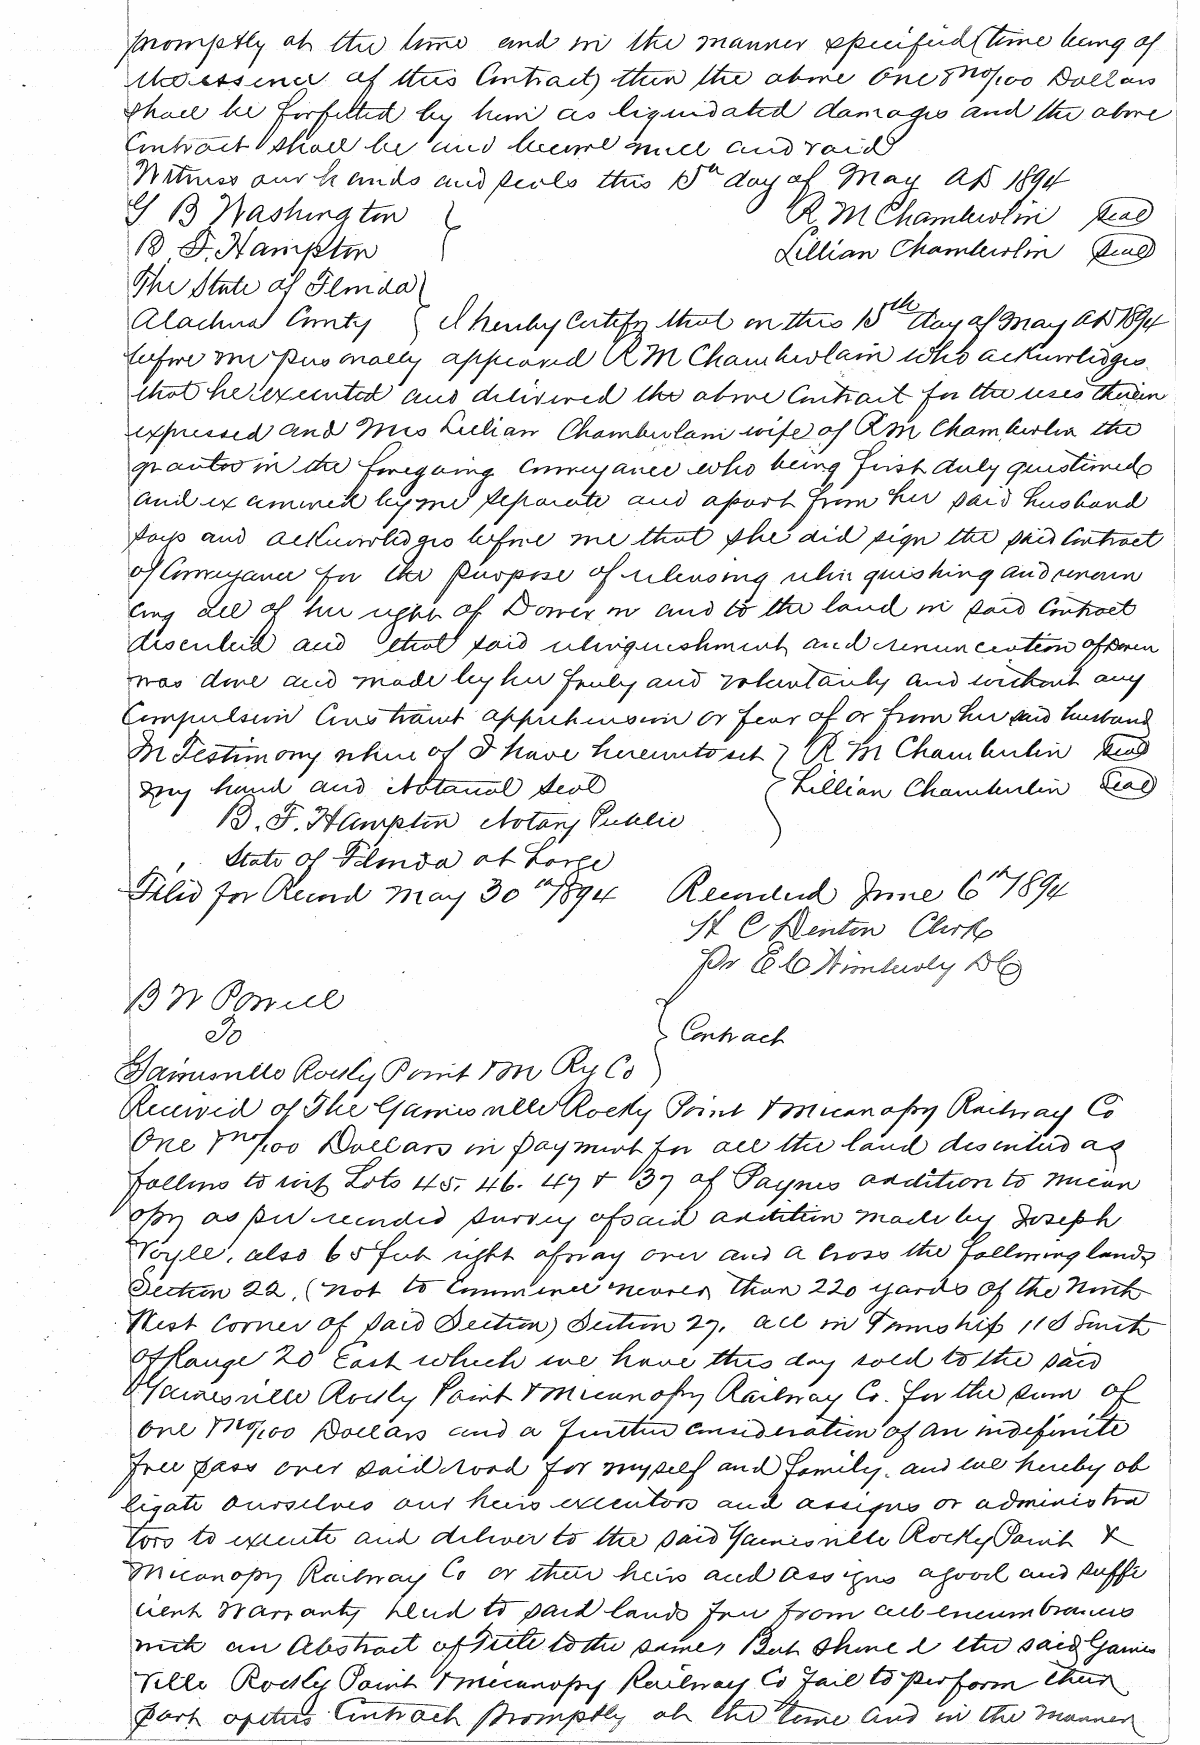 promptly at the time and in the manner specified (time being of
the essence of this Contract) then the above One & no/100 Dollars
shall be forfeited by him as liquidated damages and the above
Contract shall be and become null and void
Witness our hands and seals this 15th day of May AD 1894
G B Washington } R M Chamberlin Seal
B. F. Hampton Lillian Chamberlin Seal
The State of Florida }
Alachua County { I hereby certify that on this 15th day of May AD 1894
before me personally appeared R M Chamberlain who acknowledges
that he executed and delivered the above Contract for the uses therein
expressed and Mrs Lillian Chamberlain wife of R M Chamberlin the
grantor in the foregoing conveyance who being first duly questioned
and examined by me separate and apart from her said husband
says and acknowledges before me that she did sign the said Contract
of Conveyance for the purpose of releasing relinquishing and renoun
cing all of her right of Dower in and to the land in said Contract
described and that said relinquishment and renunciation of Dower
was done and made by her freely and voluntarily and without any
Compulsion Constraint apprehension or fear of or from her said husband
In Testimony where of I have hereunto set } R M Chamberlin Seal
my hand and Notarial Seal { Lillian Chamberlin Seal
B. F. Hampton Notary Public
State of Florida at Large
Filed for Record May 30th 1894 Recorded June 6th 1894
H C Denton Clerk
Pr E C Wimberly DC
B W Powell
To } Contract
Gainesville Rocky Point & M Ry Co
Received of The Gainesville Rocky Point & Micanopy Railway Co
One & no/100 Dollars in payment for all the land described as
follows to wit Lots 45. 46. 47 & 37 of Paynes addition to Mican
opy as per recorded survey of said addition made by Joseph
Voyle, also 65 feet right of way over and a cross the following lands
Section 22, (not to commence nearer than 220 yards of the North
West Corner of said Section) Section 27. all in Township 11 S South
Of Range 20 East which we have this day sold to the said
Gainesville Rocky Point & Micanopy Railway Co. for the sum of
One & no/100 Dollars and a further consideration of an indefinite
free pass over said road for myself and family. and we hereby ob
ligate ourselves our heirs executors and assigns or administra
tors to execute and deliver to the said Gainesville Rocky Point &
Micanopy Railway Co or their heirs and assigns a good and suffi
cient Warranty Deed to said lands free from all encumbrances
with an Abstract of Title to the same, But should the said Gaines
ville Rocky Point & Micanopy Railway Co fail to perform their
part of this Contract promptly at the time and in the manner